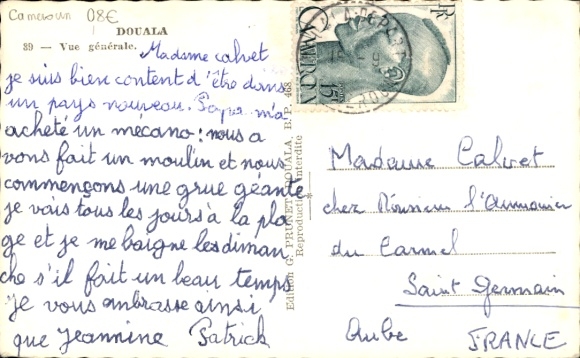 Cameroun 08€
DOUALA
39 — Vue générale.
Madame Calvet
je suis bien content d'être dans
un pays nouveau. Papa m'a
acheté un mécano : nous a
vons fait un moulin et nous
commençons une grue géante
je vais tous les jours à la pla
ge et je me baigne les diman
che s'il fait un beau temps
Je vous ambrasse ainsi
que Jeannine Patrick
Edition G. PRUNET, DOUALA, B. P. 468
Reproduction Interdite
RF
CAMEROUN
15F
Madame Calvet
chez Monsieur l'Aumonier
du Carmel
Saint Germain
Aube FRANCE